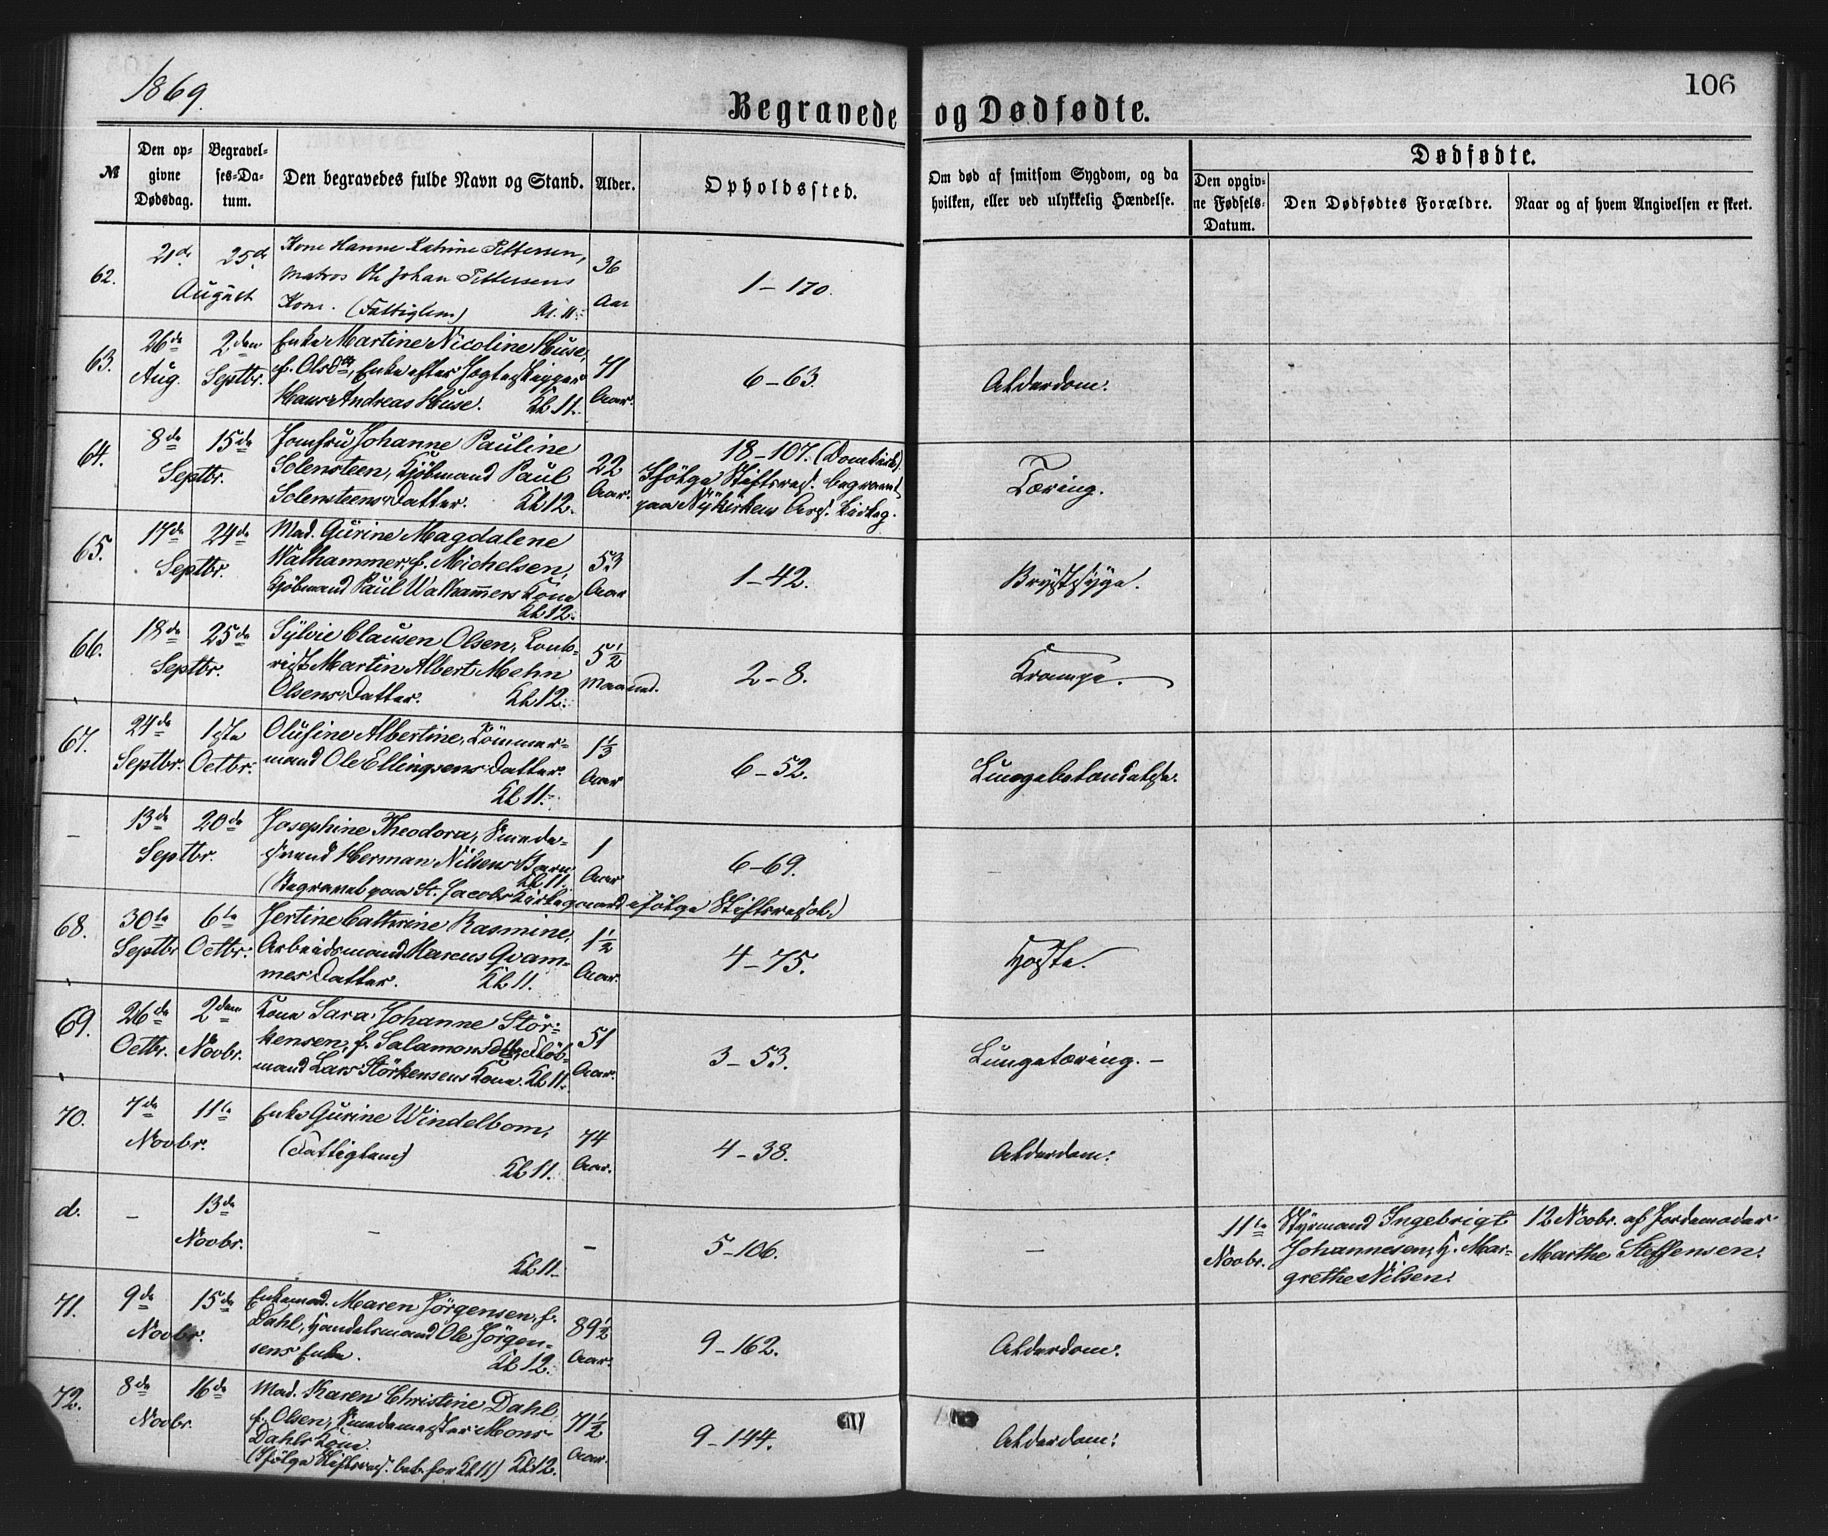 1869.
106
Begravede og Dødfødte.
№
Den opgivne Dødsdag.
Begravelses-Datum.
Den begravedes fulde Navn og Stand.
Alder.
Opholdssted.
Om død af smitsom Sygdom, og da hvilken, eller ved ulykkelig Hændelse.
Dødfødte.
Den opgivne Fødsels-Datum.
Den Dødfødtes Forældre.
Naar og af hvem Angivelsen er skeet.
62. 21de 25de August
Kone Hanne Katrine Pettersen,
Matros Ole Johan Pettersens
Kone. (Fattiglem) Kl. 11.
36 Aar
1-170.
63. 26de Aug. 2den Septbr.
Enke Martine Nicoline Huse,
f. Olsdtr, Enke efter Jægteskipper
Hans Andreas Huse. Kl 11.
71 Aar.
6-63.
Alderdom.
64. 8de 15de Septbr.
Jomfru Johanne Pauline
Solensteen, Kjöbmand Paul
Solensteens Datter. Kl 12.
22 Aar.
18-107. (Domkirk)
Ifölge Stiftsres. begravet
paa Nykirkens Ass. Kirkeg.
Tæring.
65. 17de 24de Septbr.
Mad. Gurine Magdalene
Walhammer, f. Michelsen,
Kjöbmand Paul Walhammers Kone
Kl 12.
53 Aar
1-42.
Brystsyge.
66. 18de 25de Septbr.
Sylvie Clausen Olsen,
Martin Albert Mehn
Olsens Datter. Kl 12.
5 1/2 Maaned.
2-8.
Krampe.
67. 24de Septbr. 1ste Octbr.
Olufine Albertine, Tömmer-
mand Ole Ellingsens Datter.
Kl 11.
1 1/3 Aar
6-52.
Lungebetændelse.
- 13de 20de Septbr.
Josephine Theodora, Smede-
svend Herman Nilsens Barn
Kl 11.
(Begravet paa St. Jacobs Kirkegaard ifölge Stiftsresol.)
1 Aar
6-69.
68. 30te Septbr 6te Octbr.
Jertine Cathrine Rasmine,
Arbeidsmand Marcus Qvam-
mes Datter. Kl 11.
1 1/2 Aar.
4-75.
Hoste.
69. 26de Octbr. 2den Novbr.
Kone Sara Johanne Stör-
kensen, f. Salamonsdtr,
mand Lars Störkensens Kone. Kl 11.
51 Aar.
3-53.
Lungetæring. -
70. 7de 11te Novbr.
Enke Gurine Windelbom,
(Fattiglem)
Kl 11.
74 Aar.
4-38.
Alderdom.
d. - 13de Novbr.
-
Kl 11.
-
5-106.
-
11te Novbr.
Styrmand Ingebrigt
Johannesen, H. Mar-
grethe Nilsen.
12 Novbr. af Jordemoder
Marthe Steffensen.
71. 9de 15de Novbr.
Enkemad. Maren Jörgensen, f.
Dahl, Handelsmand Ole Jörgen-
sens Enke. Kl 12.
89 1/2 Aar.
9-162.
Alderdom.
72. 8de 16de Novbr.
Mad. Karen Christine Dahl
f. Olsen, Smedemester Mons
Dahls Kone.
(Ifölge Stiftsres. bet. for Kl 11) Kl 12.
71 1/2 Aar.
9-144.
Alderdom.